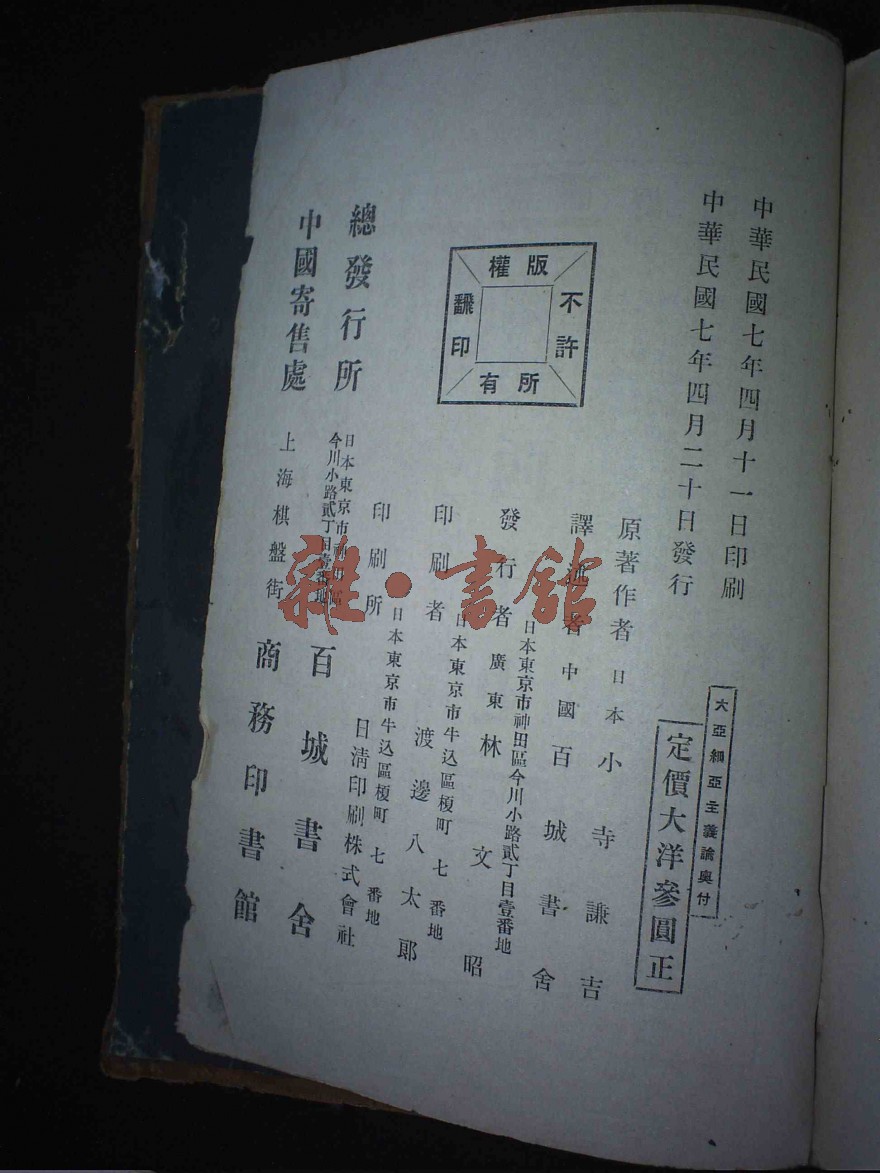 中華民國七年四月十一日印刷
中華民國七年四月二十日發行
大亞細亞主義論奧付
定價大洋參圓正
版權
所有
不許
翻印
原著作者 日本 小寺謙吉
譯述者 中國百城書舍
日本東京市神田區今川小路貳丁目壹番地
發行者 廣東 林文昭
日本東京市牛込區榎町七番地
印刷者 渡邊八太郎
日本東京市牛込區榎町七番地
印刷所 日清印刷株式會社
總發行所 日本東京市神田區今川小路貳丁目壹番地 百城書舍
中國寄售處 上海棋盤街 商務印書館
雜·書館